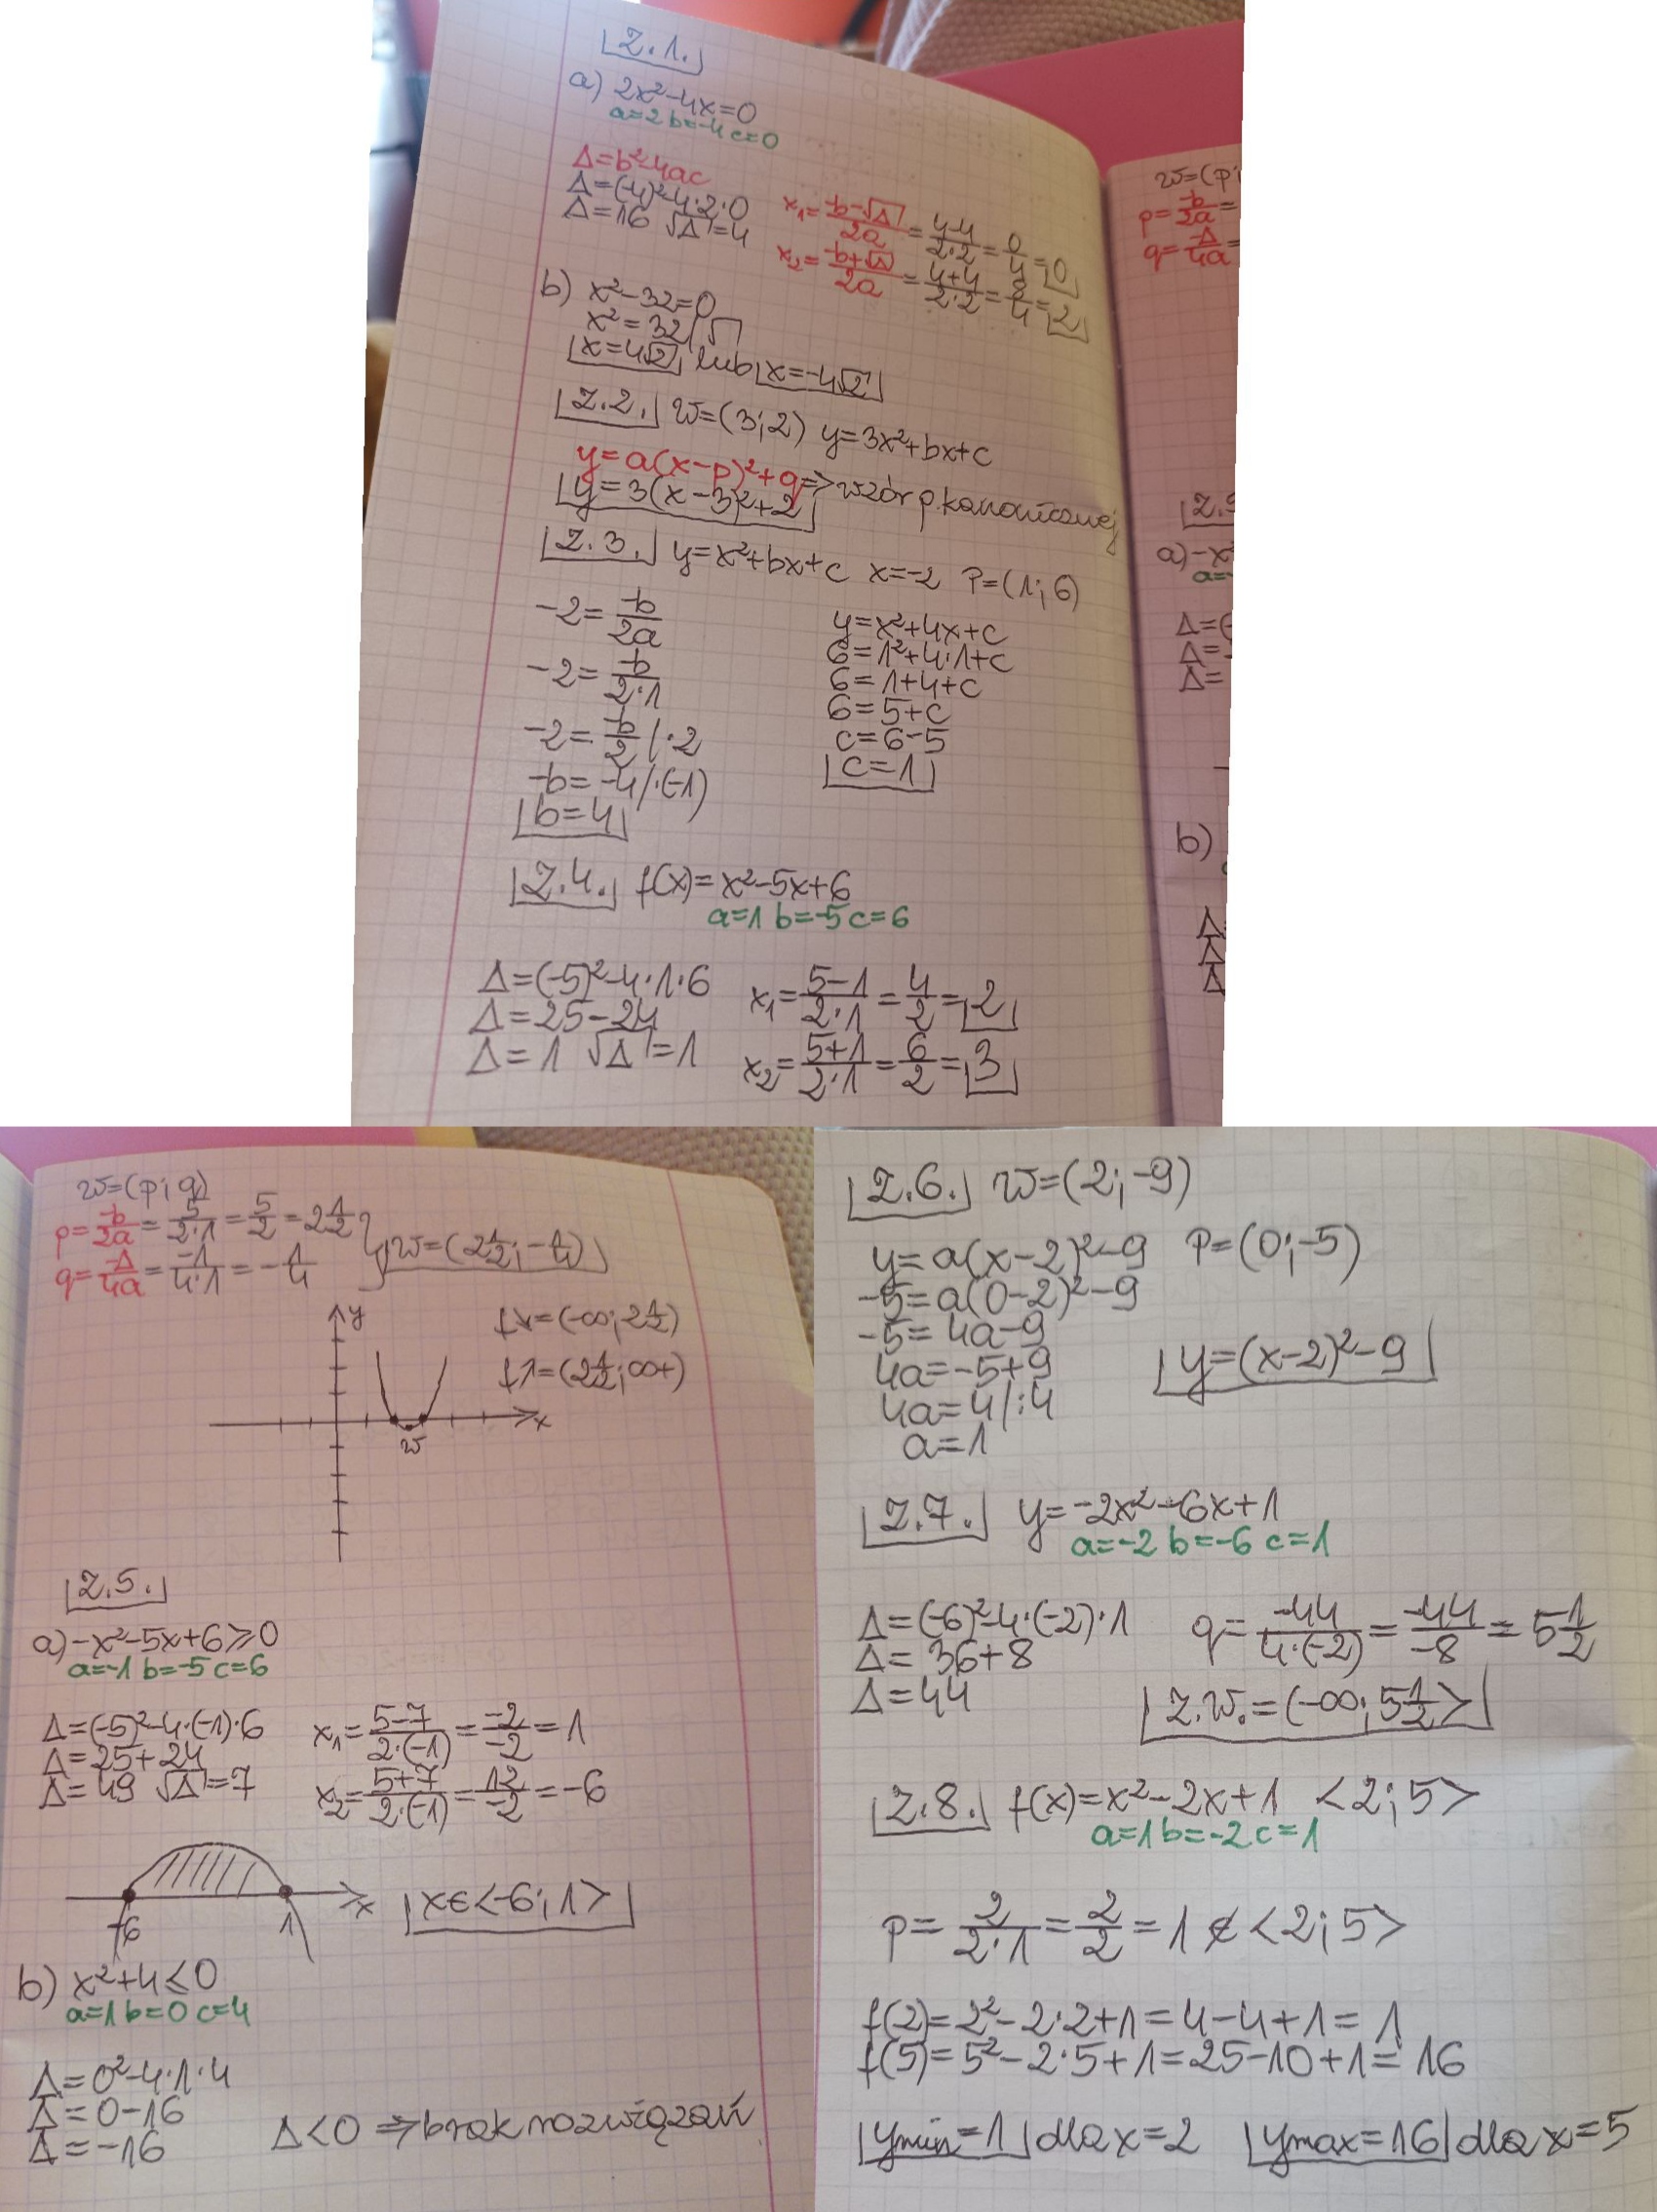 Z.1.
a) 2x²-4x=0
a=2 b=-4 c=0
Δ=b²-4ac
Δ=(-4)²-4·2·0
Δ=16 √Δ=4
x₁=(-b-√Δ)/2a=(4-4)/(2·2)=0/4=0
x₂=(-b+√Δ)/2a=(4+4)/(2·2)=8/4=2
b) x²-32=0
x²=32/√
x=4√2 lub x=-4√2
Z.2. W=(3;2) y=3x²+bx+c
y=a(x-p)²+q=>wzór p.kanonicznej
y=3(x-3)²+2
Z.3. y=x²+bx+c x=-2 P=(1;6)
-2=-b/2a
-2=-b/(2·1)
-2=-b/2 /·2
-b=-4/·(-1)
b=4
y=x²+4x+c
6=1²+4·1+c
6=1+4+c
6=5+c
c=6-5
c=1
Z.4. f(x)=x²-5x+6
a=1 b=-5 c=6
Δ=(-5)²-4·1·6
Δ=25-24
Δ=1 √Δ=1
x₁=(5-1)/(2·1)=4/2=2
x₂=(5+1)/(2·1)=6/2=3
W=(p;
p=-b/2a=
q=-Δ/4a=
Z.5
a)-x²
a=-
Δ=(-
Δ=
Δ=
b)
Δ=
Δ
Δ
W=(p;q)
p=-b/2a=5/(2·1)=5/2=2½
q=-Δ/4a=-1/(4·1)=-¼
W=(2½;-¼)
y
f↘=(-∞;2½)
f↗=(2½;∞+)
x
W
Z.5.
a)-x²-5x+6≥0
a=-1 b=-5 c=6
Δ=(-5)²-4·(-1)·6
Δ=25+24
Δ=49 √Δ=7
x₁=(5-7)/(2·(-1))=-2/-2=1
x₂=(5+7)/(2·(-1))=12/-2=-6
-6 1 x
x∈<-6;1>
b) x²+4≤0
a=1 b=0 c=4
Δ=0²-4·1·4
Δ=0-16
Δ=-16
Δ<0 => brak rozwiązań
Z.6. W=(2;-9)
y=a(x-2)²-9 P=(0;-5)
-5=a(0-2)²-9
-5=4a-9
4a=-5+9
4a=4/:4
a=1
y=(x-2)²-9
Z.7. y=-2x²-6x+1
a=-2 b=-6 c=1
Δ=(-6)²-4·(-2)·1
Δ=36+8
Δ=44
q=-44/(4·(-2))=-44/-8=5½
Z.W.=(-∞;5½>
Z.8. f(x)=x²-2x+1 <2;5>
a=1 b=-2 c=1
P=2/(2·1)=2/2=1∉<2;5>
f(2)=2²-2·2+1=4-4+1=1
f(5)=5²-2·5+1=25-10+1=16
ymin=1 dla x=2 ymax=16 dla x=5